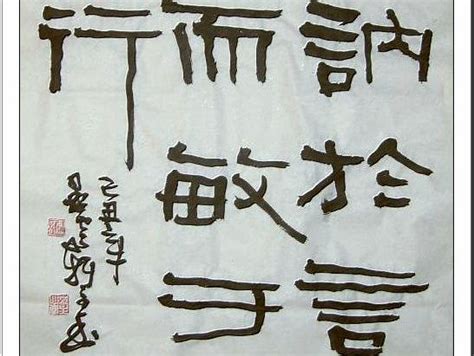 訥於言
而敏于
行
己丑